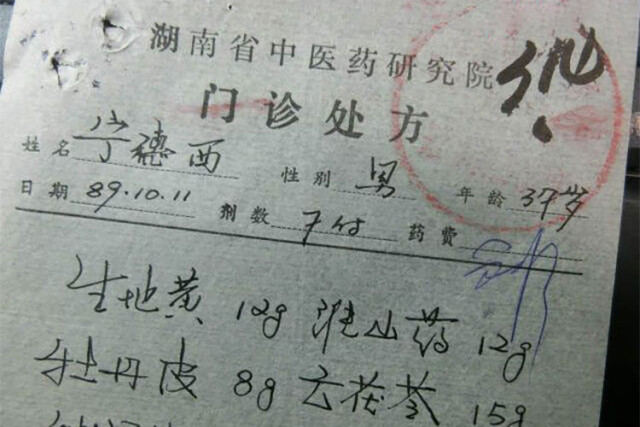 湖南省中医药研究院
门诊处方
姓名 宁德西 性别 男 年龄 37岁
日期 89.10.11 剂数 7付 药费
生地黄 12g 淮山药 12g
牡丹皮 8g 云茯苓 15g